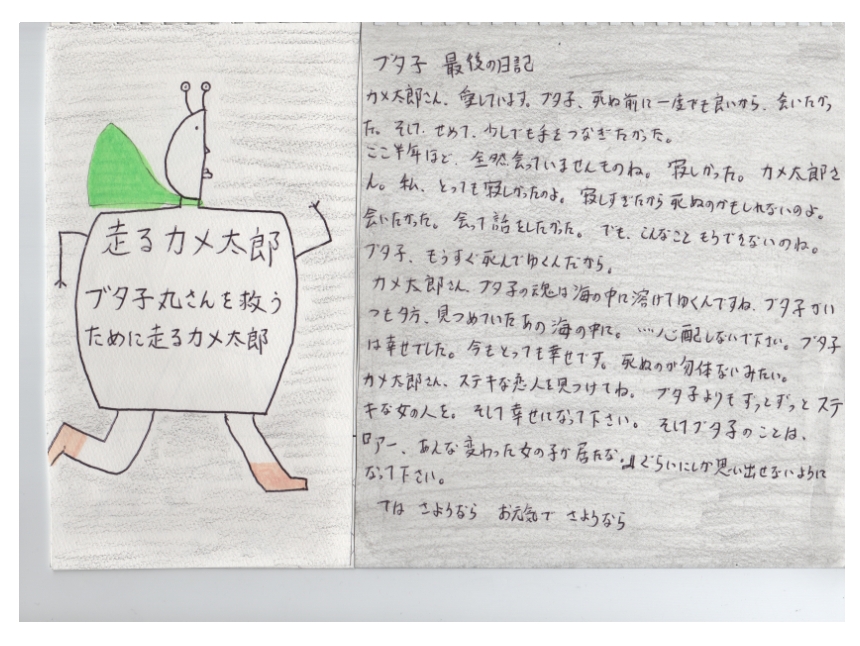 走るカメ太郎
ブタ子丸さんを救う
ために走るカメ太郎
ブタ子 最後の日記
カメ太郎さん、愛しています。ブタ子、死ぬ前に一度でも良いから、会いたかっ
た。そして、せめて、少しでも手をつなぎたかった。
ここ半年ほど、全然会っていませんものね。寂しかった。カメ太郎さ
ん。私、とっても寂しかったのよ。寂しすぎたから死ぬのかもしれないのよ。
会いたかった。会って話をしたかった。でも、こんなこともうできないのね。
ブタ子、もうすぐ死んでゆくんだから。
カメ太郎さん、ブタ子の魂は海の中に溶けてゆくんですね、ブタ子がい
つも夕方、見つめていたあの海の中に。……心配しないで下さい。ブタ子
は幸せでした。今もとっても幸せです。死ぬのが勿体ないみたい。
カメ太郎さん、ステキな恋人を見つけてね。ブタ子よりもずっとずっとステ
キな女の人を。そして幸せになって下さい。そしてブタ子のことは、
『アー、あんな変わった女の子が居たな。』ぐらいにしか思い出せないように
なって下さい。
では さようなら お元気で さようなら